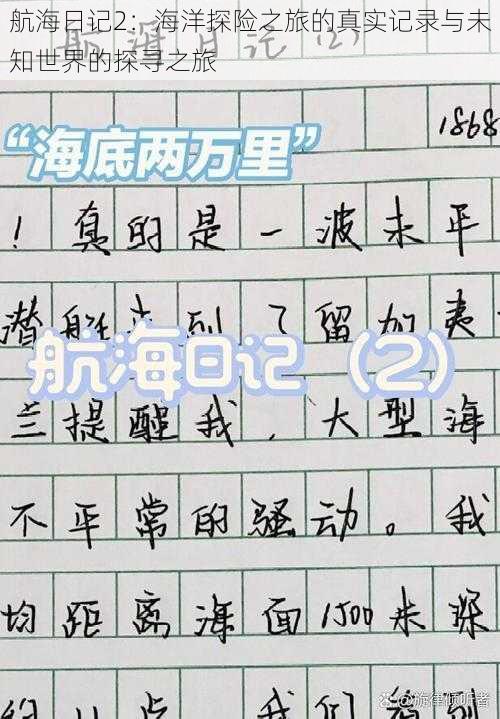 航海日记2：海洋探险之旅的真实记录与未
知世界的探寻之旅
航海日记(2)
1868
“海底两万里”
！真的是一波未平
潜船来到了留加夷
航海日记（2）
兰提醒我，大型海
不平常的骚动。我
均距离海面1500米深
约11点 我们
旋律倾听者